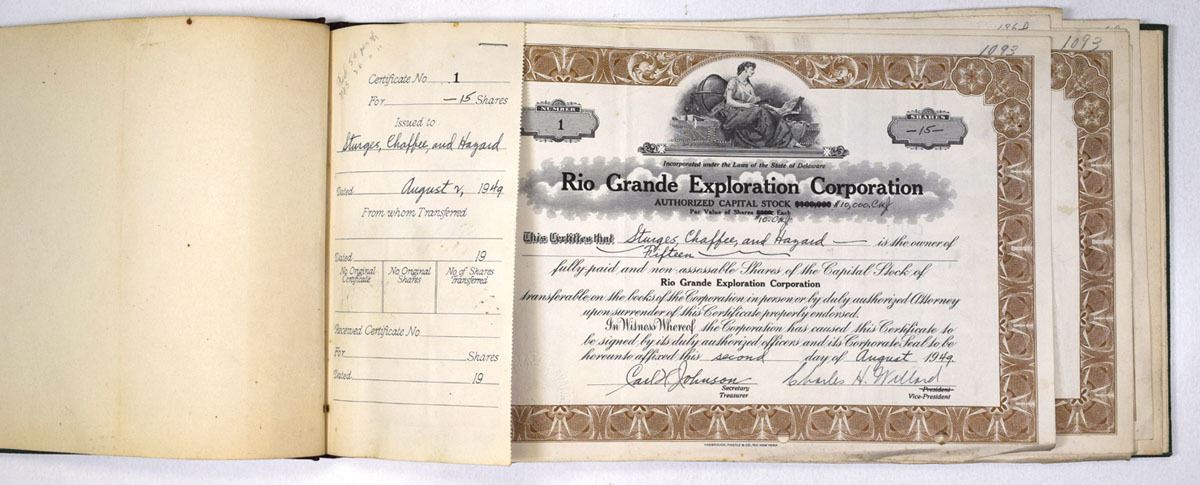 Certificate No. 1
For —15 Shares
Issued to
Sturges, Chaffee, and Hazard
Dated August 2, 1949
From whom Transferred
Dated 19
No. Original Certificate
No. Original Shares
No. of Shares Transferred
Received Certificate No.
For Shares
Dated 19
1093
1093
NUMBER
1
SHARES
—15—
Incorporated under the Laws of the State of Delaware
Rio Grande Exploration Corporation
AUTHORIZED CAPITAL STOCK $100,000 $10,000
Par Value of Shares Each
This Certifies that Sturges, Chaffee, and Hazard — is the owner of
Fifteen
fully paid and non-assessable Shares of the Capital Stock of
Rio Grande Exploration Corporation
transferable on the books of the Corporation in person or by duly authorized Attorney
upon surrender of this Certificate properly endorsed.
In Witness Whereof the Corporation has caused this Certificate to
be signed by its duly authorized officers and its Corporate Seal to be
hereunto affixed this second day of August 1949.
Carl H Johnson
Charles H. Willard
Secretary
Treasurer
President
Vice-President